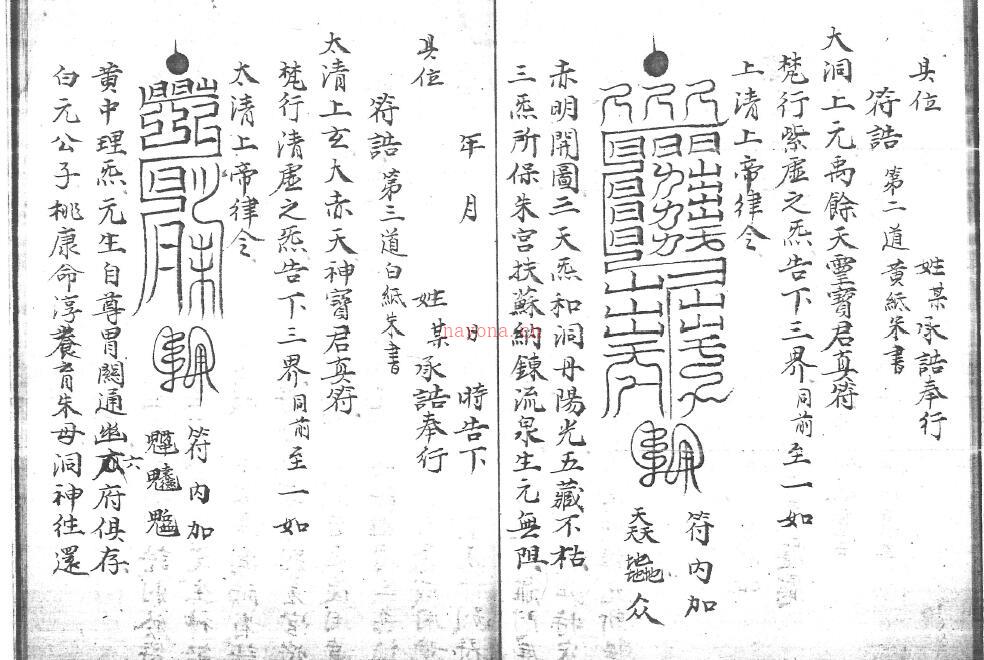 具位 姓某承誥奉行
符誥 第二道黄紙朱書
大洞上元禹餘天靈寶君真符
梵行紫虛之炁告下三界同前至一如
上清上帝律令
符内加
赤明開圖二天炁和洞丹陽光五藏不枯
三炁所保朱宮扶蘇納鍊流泉生元無阻
年 月 日 時告下
具位 姓某承誥奉行
符誥 第三道白紙朱書
太清上玄大赤天神寶君真符
梵行清虛之炁告下三界同前至一如
太清上帝律令
符内加
黄中理炁元生自尊胃闕通幽六府俱存
白元公子桃康命淳養育朱母洞神往還
nayona.cn